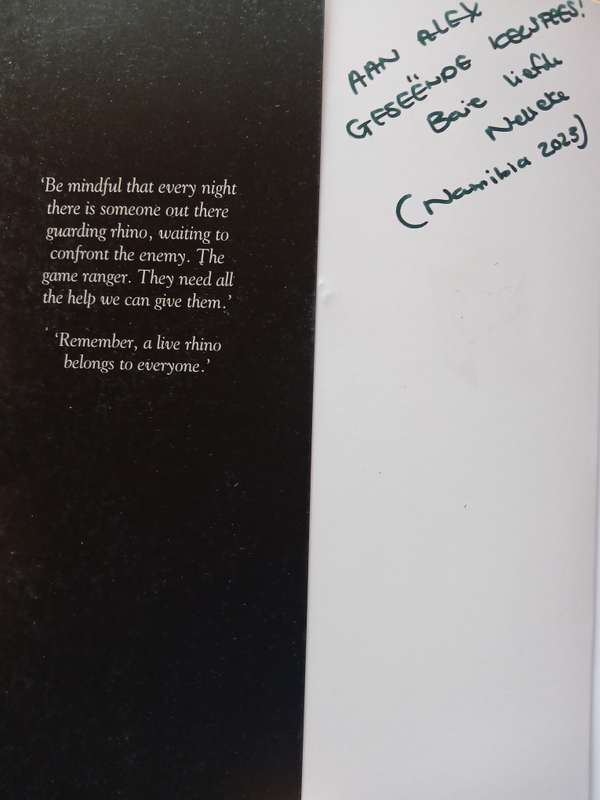 'Be mindful that every night
there is someone out there
guarding rhino, waiting to
confront the enemy. The
game ranger. They need all
the help we can give them.'
'Remember, a live rhino
belongs to everyone.'
AAN ALEX
GESEËNDE KERSFEES!
Baie liefde
Nelleke
(Namibia 2023)